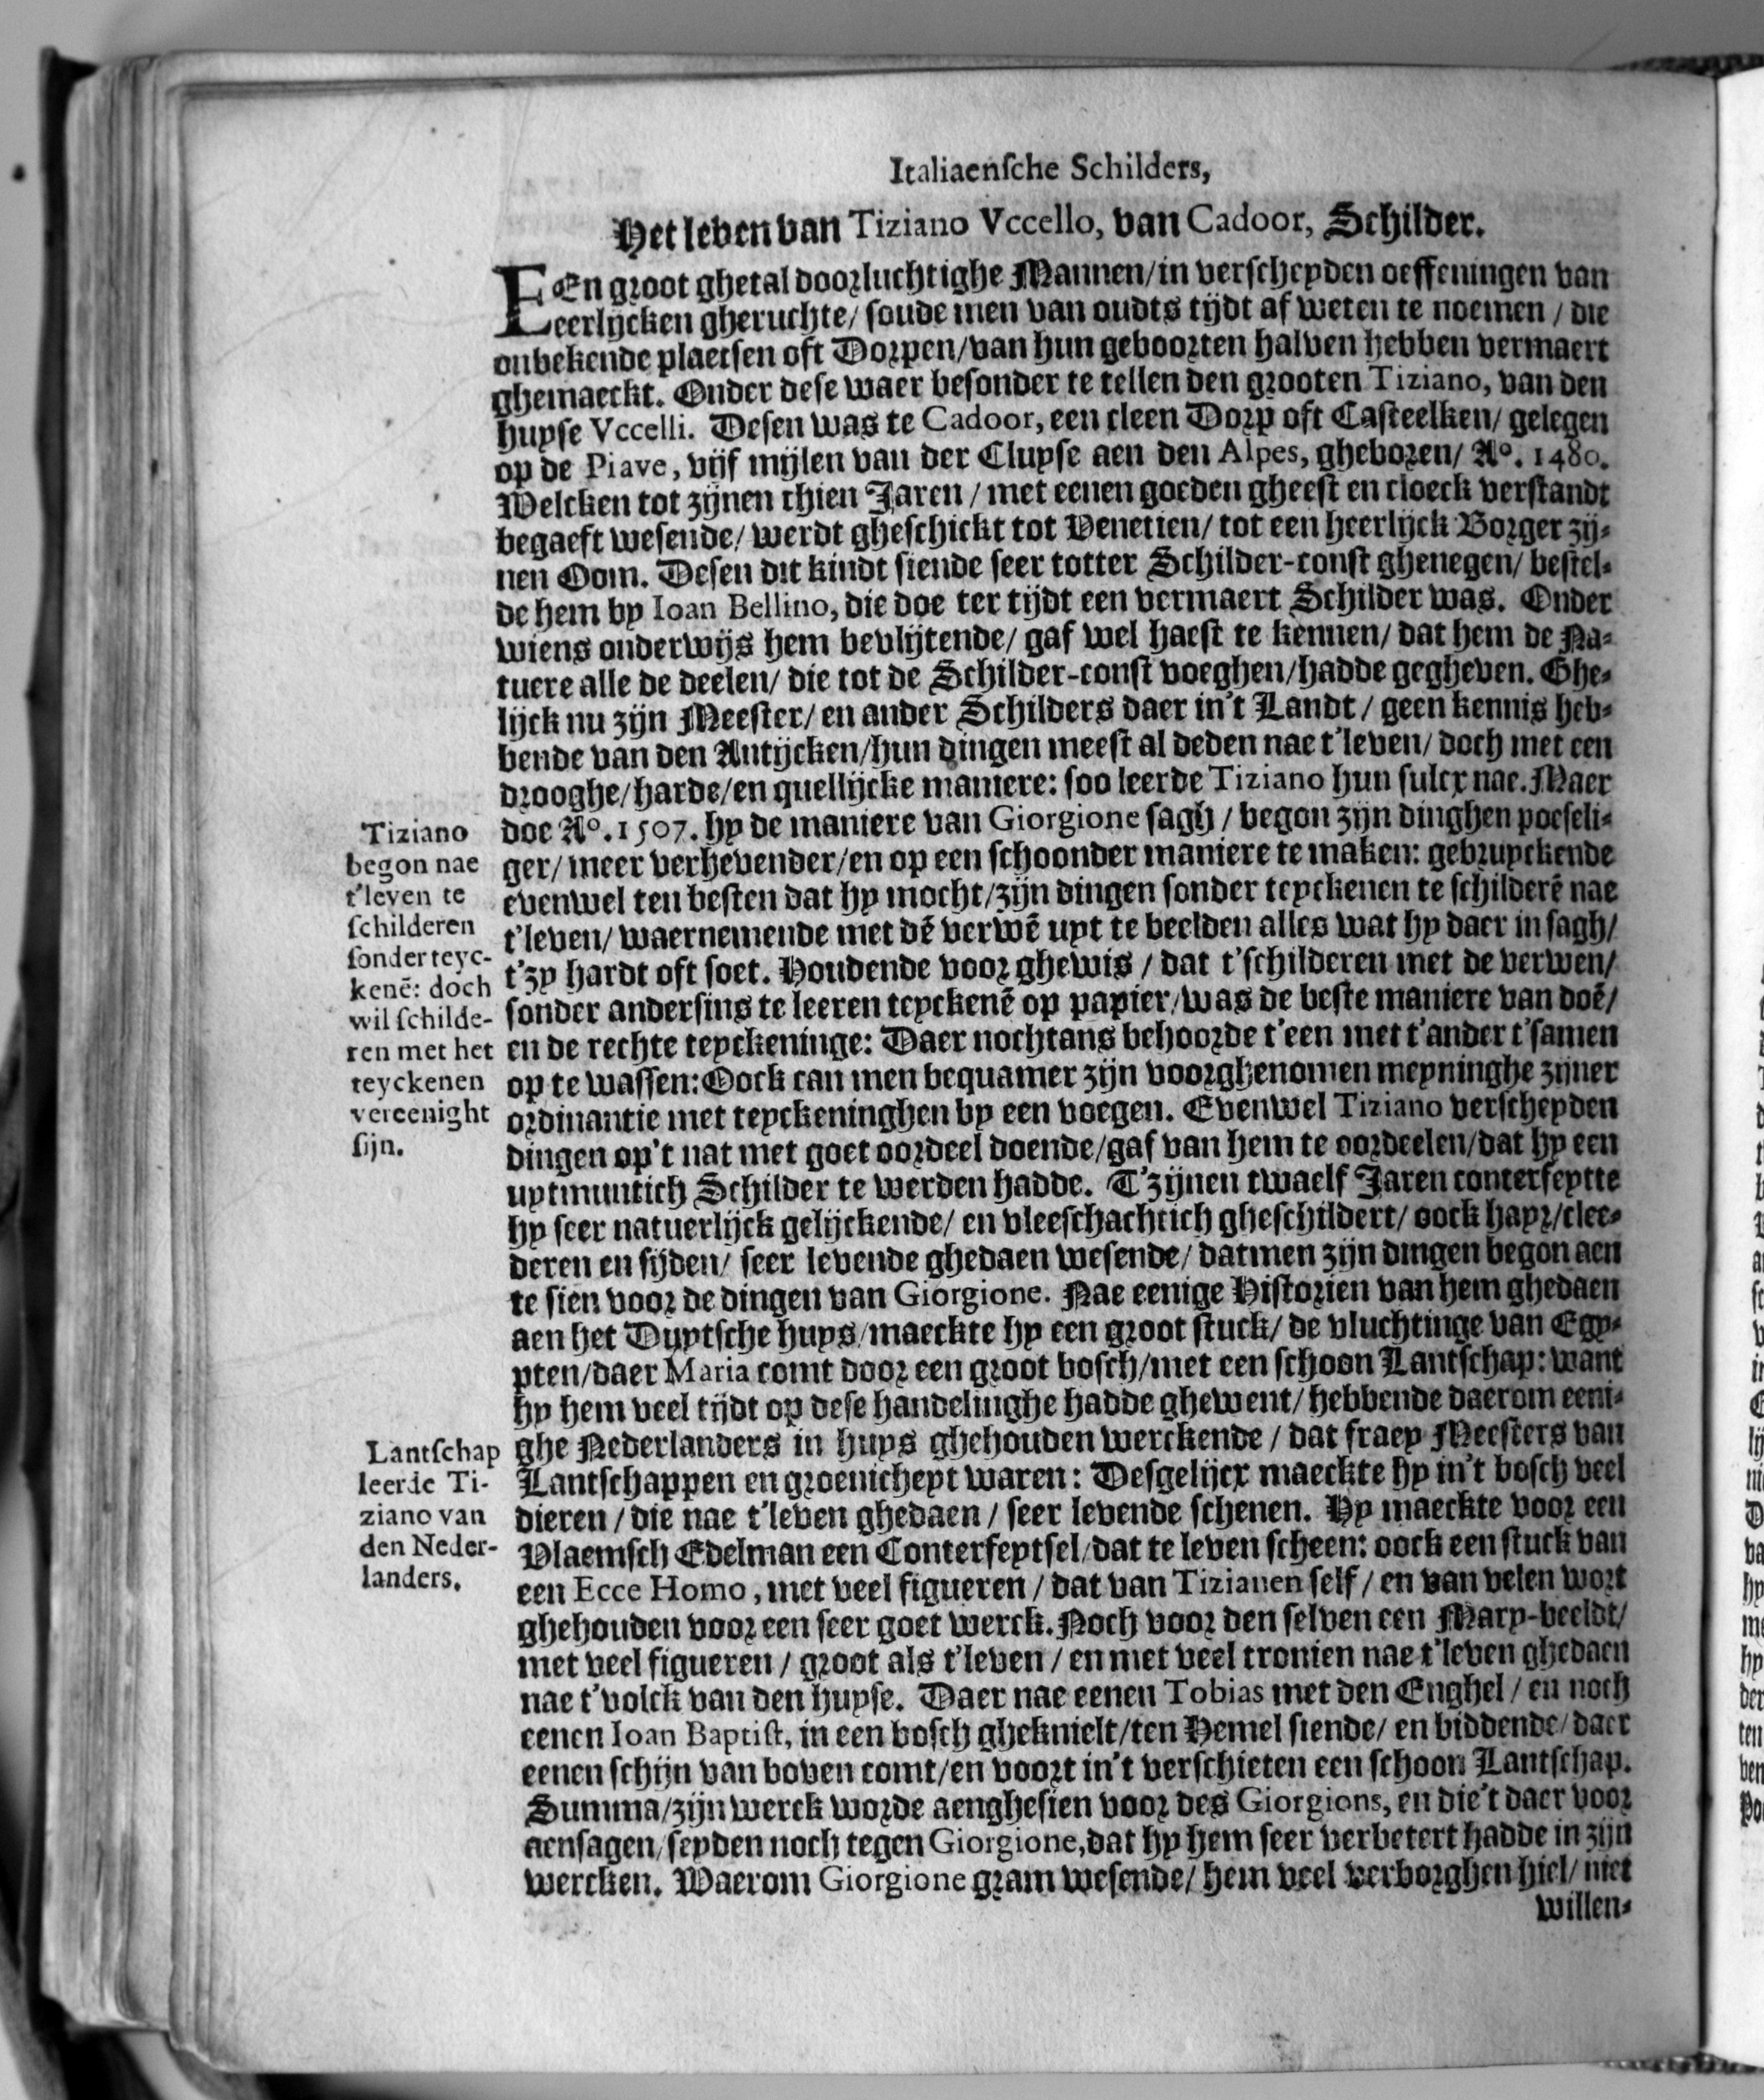 Italiaensche Schilders,
Het leven van Tiziano Vccello, van Cadoor, Schilder.
EEn groot ghetal doorluchtighe Mannen/in verscheyden oeffeningen van
eerlijcken gheruchte/ soude men van oudts tijdt af weten te noemen / die
onbekende plaetsen oft Dorpen/van hun geboorten halven hebben vermaert
ghemaeckt. Onder dese waer besonder te tellen den grooten Tiziano, van den
huyse Vccelli. Desen was te Cadoor, een cleen Dorp oft Casteelken/ gelegen
op de Piave, vijf mijlen van der Cluyse aen den Alpes, gheboren/ A°. 1480.
Welcken tot zijnen thien Jaren / met eenen goeden gheest en cloeck verstandt
begaeft wesende/ werdt gheschickt tot Venetien/ tot een heerlijck Borger zij-
nen Oom. Desen dit kindt siende seer totter Schilder-const ghenegen/ bestel-
de hem by Ioan Bellino, die doe ter tijdt een vermaert Schilder was. Onder
wiens onderwijs hem bevlijtende/ gaf wel haest te kennen/ dat hem de Na-
tuere alle de deelen/ die tot de Schilder-const voeghen/hadde gegheven. Ghe-
lijck nu zijn Meester/ en ander Schilders daer in't Landt / geen kennis heb-
bende van den Antijcken/hun dingen meest al deden nae t'leven/ doch met een
drooghe/harde/en quellijcke maniere: soo leerde Tiziano hun sulcx nae. Maer
doe A°. 1507. hy de maniere van Giorgione sagh / begon zijn dinghen poeseli-
ger/ meer verhevender/en op een schoonder maniere te maken: gebruyckende
evenwel ten besten dat hy mocht/zijn dingen sonder teyckenen te schilderẽ nae
t'leven/ waernemende met dẽ verwẽ uyt te beelden alles wat hy daer in sagh/
t'zy hardt oft soet. Houdende voor ghewis / dat t'schilderen met de verwen/
sonder andersins te leeren teyckenẽ op papier/was de beste maniere van doẽ/
en de rechte teyckeninge: Daer nochtans behoorde t'een met t'ander t'samen
op te wassen: Oock can men bequamer zijn voorghenomen meyninghe zijner
ordinantie met teyckeninghen by een voegen. Evenwel Tiziano verscheyden
dingen op't nat met goet oordeel doende/gaf van hem te oordeelen/dat hy een
uytmuntich Schilder te werden hadde. T'zijnen twaelf Jaren conterfeytte
hy seer natuerlijck gelijckende/ en vleeschachtich gheschildert/ oock hayr/clee-
deren en sijden/ seer levende ghedaen wesende/ datmen zijn dingen begon aen
te sien voor de dingen van Giorgione. Nae eenige Historien van hem ghedaen
aen het Duytsche huys/maeckte hy een groot stuck/ de vluchtinge van Egy-
pten/daer Maria comt door een groot bosch/met een schoon Lantschap: want
hy hem veel tijdt op dese handelinghe hadde ghewent/ hebbende daerom eeni-
ghe Nederlanders in huys ghehouden werckende / dat fraey Meesters van
Lantschappen en groenicheyt waren: Desgelijcx maeckte hy in't bosch veel
dieren / die nae t'leven ghedaen / seer levende schenen. Hy maeckte voor een
Vlaemsch Edelman een Conterfeytsel/dat te leven scheen: oock een stuck van
een Ecce Homo, met veel figueren / dat van Tizianen self / en van velen wort
ghehouden voor een seer goet werck. Noch voor den selven een Mary-beeldt/
met veel figueren / groot als t'leven / en met veel tronien nae t'leven ghedaen
nae t'volck van den huyse. Daer nae eenen Tobias met den Enghel / en noch
eenen Ioan Baptist, in een bosch gheknielt/ten Hemel siende/ en biddende/daer
eenen schijn van boven comt/en voort in't verschieten een schoon Lantschap.
Summa/zijn werck worde aenghesien voor des Giorgions, en die't daer voor
aensagen/seyden noch tegen Giorgione,dat hy hem seer verbetert hadde in zijn
wercken. Waerom Giorgione gram wesende/ hem veel verborghen hiel/ niet
willen-
Tiziano
begon nae
t'leven te
schilderen
sonder teyc-
kenẽ: doch
wil schilde-
ren met het
teyckenen
vereenight
sijn.
Lantschap
leerde Ti-
ziano van
den Neder-
landers.